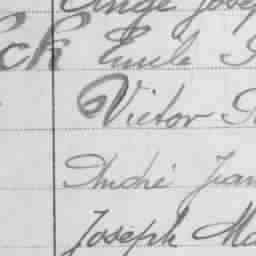 Ange Josep
ck Emile
Victor
André Jean
Joseph Ma